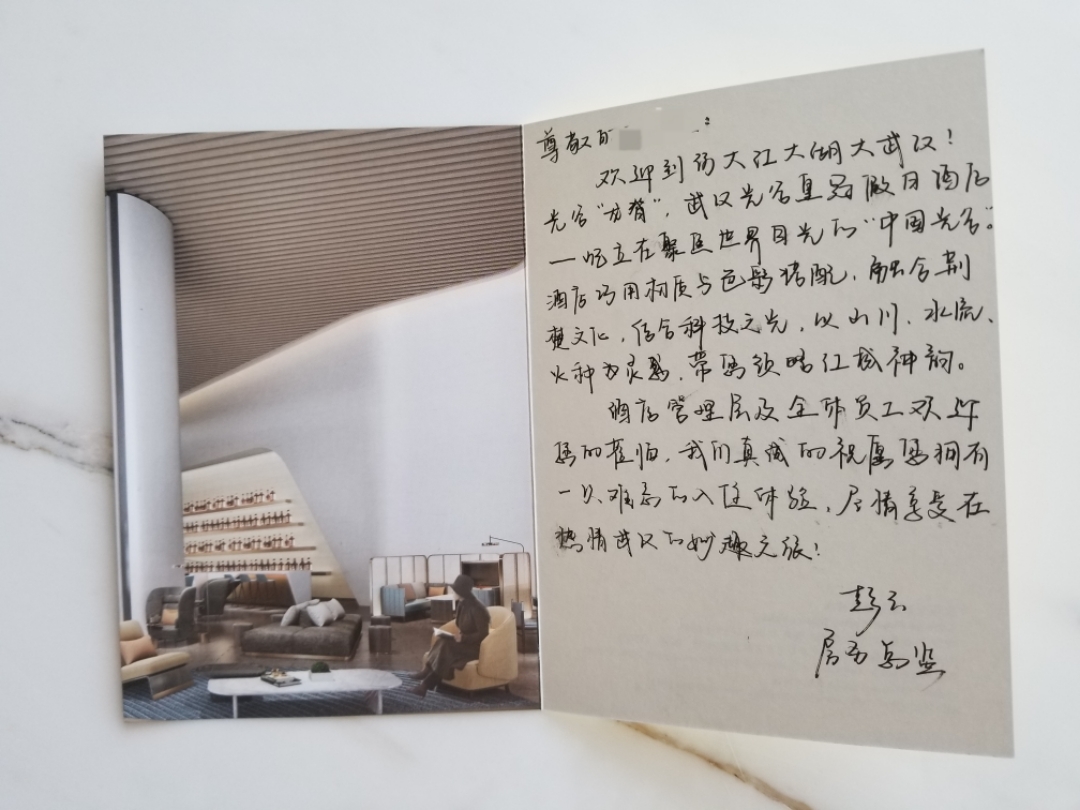 尊敬的
欢迎到访大江大湖大武汉！
光谷“方背”，武汉光谷皇冠假日酒店
—屹立在聚焦世界目光的“中国光谷”。
酒店巧用材质与色彩搭配，融合荆
楚文化，结合科技之光，以山川、水流、
火种为灵感，带您领略江城神韵。
酒店管理层及全体员工欢迎
您的莅临，我们真诚的祝愿您拥有
一次难忘的入住体验，尽情享受在
热情武汉的妙趣之旅！
彭云
房务总监